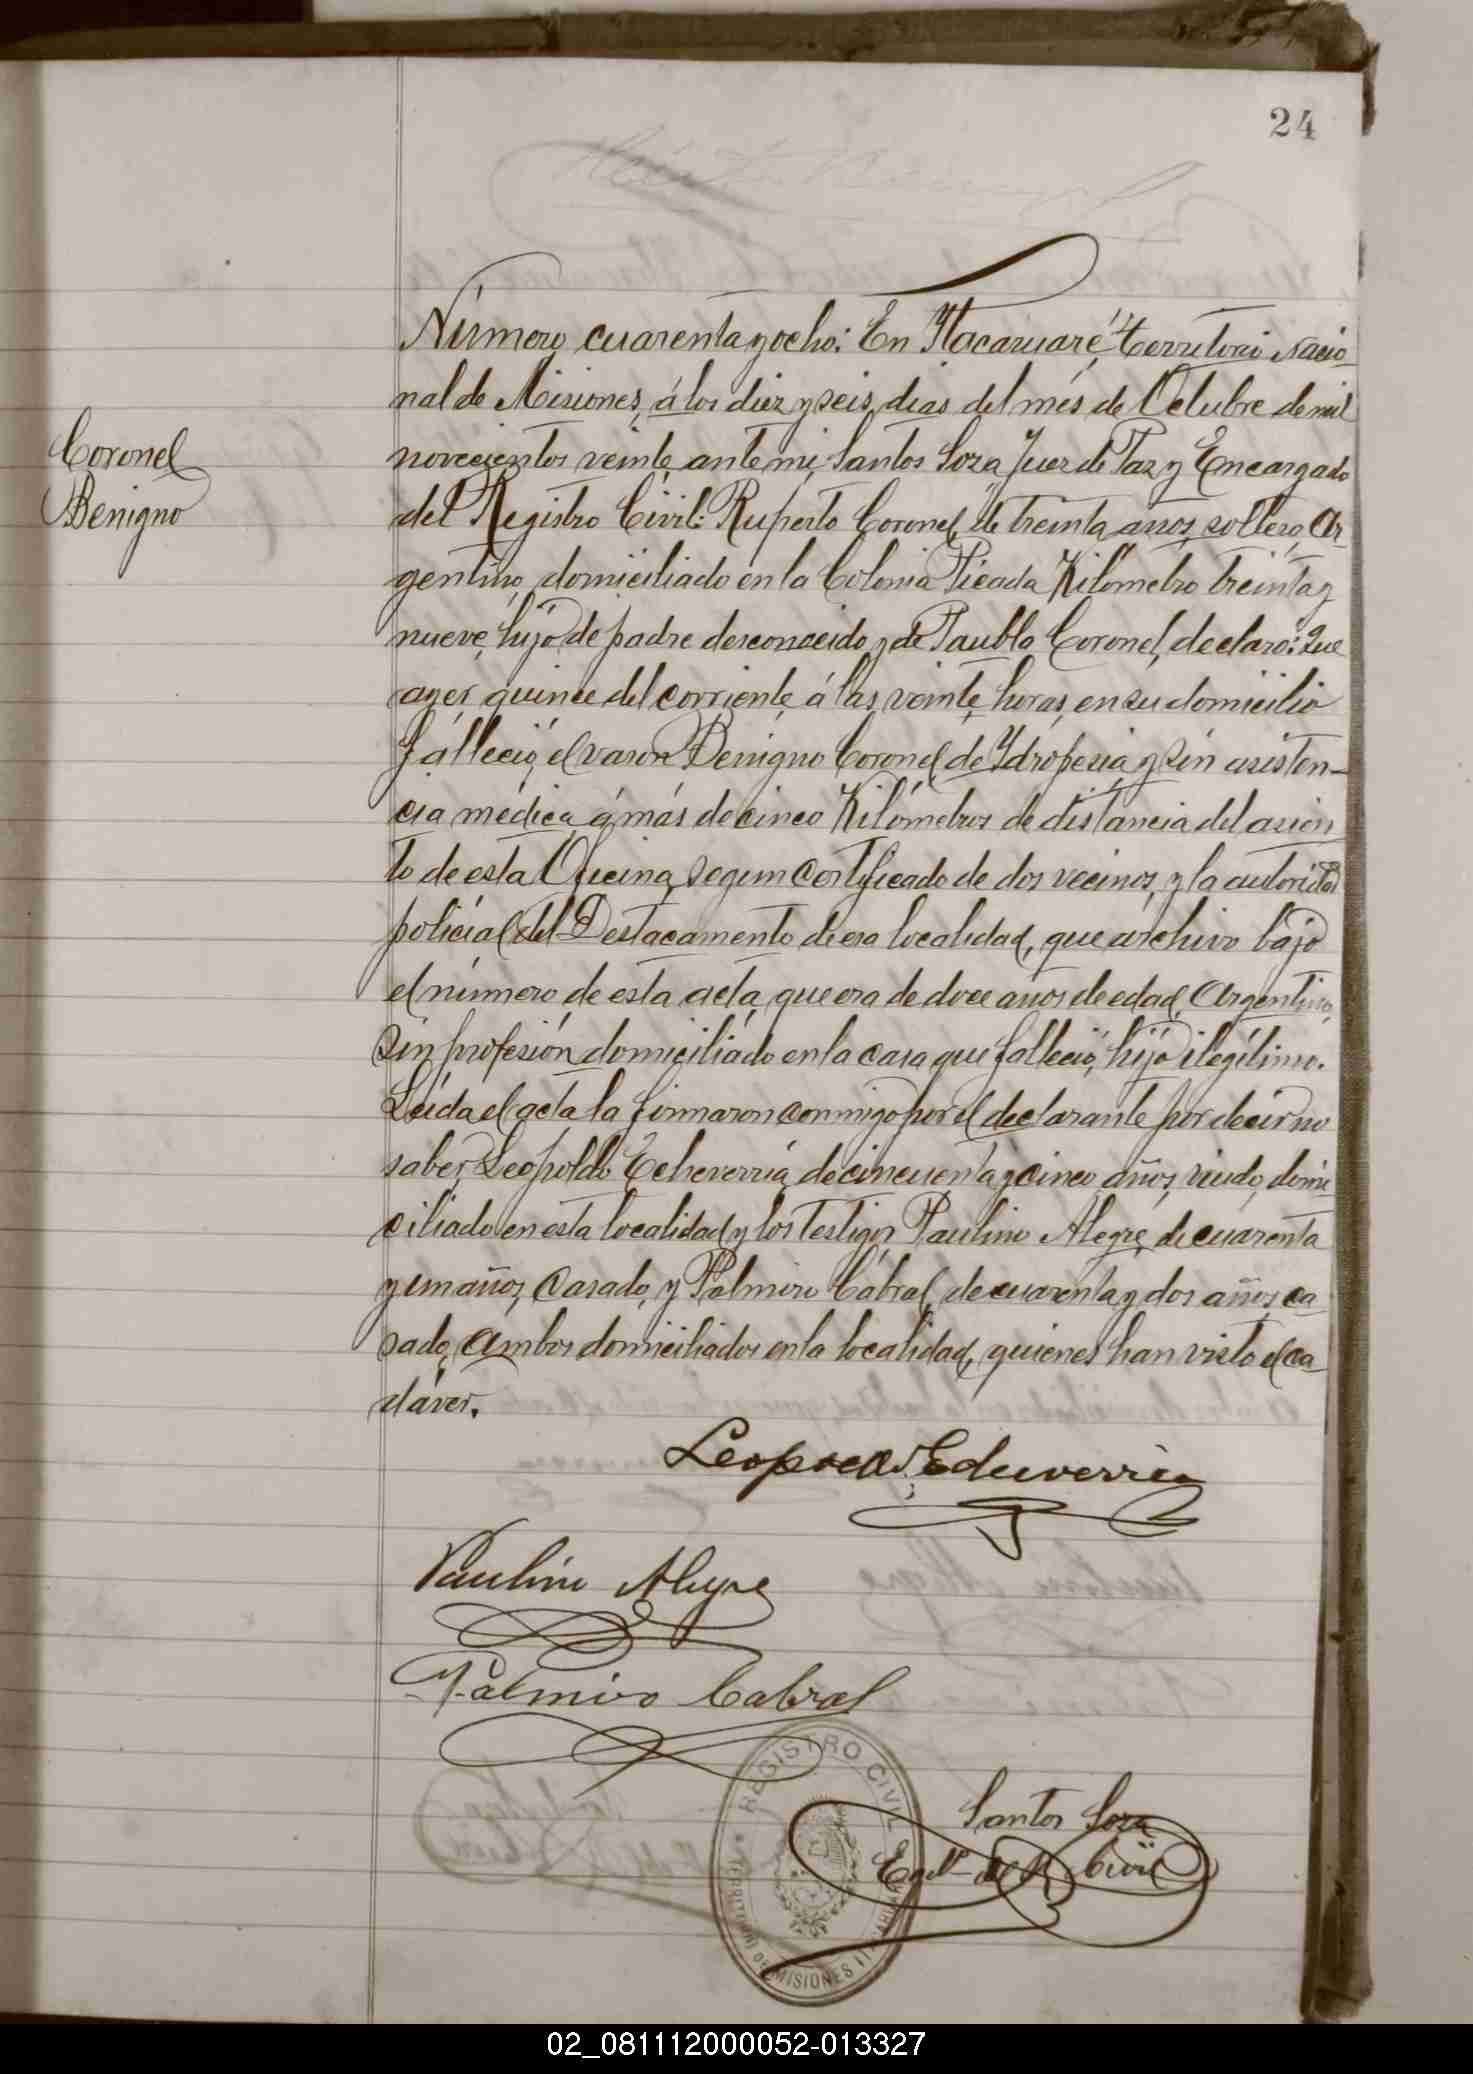 24
Coronel
Benigno
Número cuarenta y ocho: En Itacaruaré, Territorio Nacio-
nal de Misiones, á los diez y seis dias del més de Octubre de mil
novecientos veinte, ante mi, Santos Soza Juez de Paz y Encargado
del Registro Civil: Ruperto Coronel, de treinta años, soltero, Ar-
gentino, domiciliado en la Colonia Picada Kilómetro treinta y
nueve, hijo de padre desconocido y de Paubla Coronel, declaró: Que
ayer quince del corriente á las veinte horas, en su domicilio
falleció, el varon Benigno Coronel de Ydropesia, y sin asisten-
cia médica, á más de cinco Kilómetros de distancia del asien-
to de esta Oficina, segun certificado de dos vecinos, y la autoridad
policial del Destacamento de esa localidad, que archivo bajo
el número de esta acta, que era de doce años de edad, Argentino,
sin profesión, domiciliado en la casa que falleció, hijo ilegítimo.
Leida el acta la firmaron conmigo por el declarante por decir no
saber, Leopoldo Echeverria, de cincuenta y cinco años, viudo, domi-
ciliado en esta localidad y los testigos Paulino Alegre, de cuarenta
y un años, casado, y Palmiro Cabral, de cuarenta y dos años, ca-
sado, ambos domiciliados en la localidad, quienes han visto el ca-
dáver.
Leopoldo Echeverria
Paulino Alegre
Palmiro Cabral
REGISTRO CIVIL
TERRITORIO DE MISIONES ITACARUARÉ
Santos Soza
Egdo. del R. Civil
02_081112000052-013327